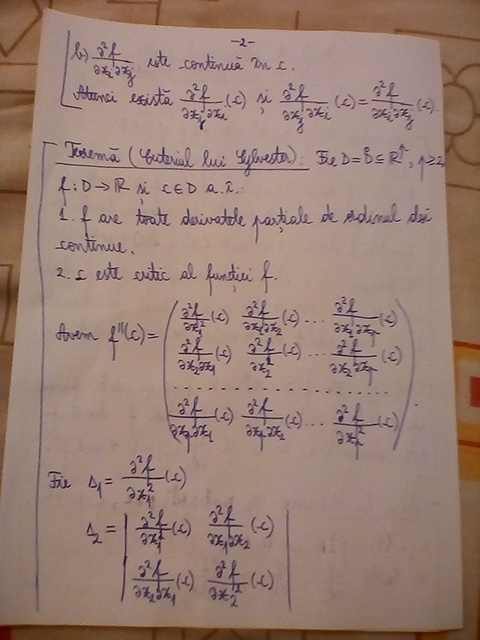 -2-
b) ∂²f/∂xᵢ∂xⱼ este continuă în c.
Atunci există ∂²f/∂xⱼ∂xᵢ (c) și ∂²f/∂xⱼ∂xᵢ (c) = ∂²f/∂xᵢ∂xⱼ (c).
Teoremă (Criteriul lui Sylvester): Fie D = D̊ ⊆ ℝᵖ, p ≥ 2,
f : D → ℝ și c ∈ D a.î.:
1. f are toate derivatele parțiale de ordinul doi
continue.
2. c este critic al funcției f.
Avem f''(c) = ( ∂²f/∂x₁² (c) ∂²f/∂x₁∂x₂ (c) ... ∂²f/∂x₁∂xₚ (c)
∂²f/∂x₂∂x₁ (c) ∂²f/∂x₂² (c) ... ∂²f/∂x₂∂xₚ (c)
. . . . . . . . . . . . . . . . . .
∂²f/∂xₚ∂x₁ (c) ∂²f/∂xₚ∂x₂ (c) ... ∂²f/∂xₚ² (c) ).
Fie Δ₁ = ∂²f/∂x₁² (c)
Δ₂ = | ∂²f/∂x₁² (c) ∂²f/∂x₁∂x₂ (c)
∂²f/∂x₂∂x₁ (c) ∂²f/∂x₂² (c) |